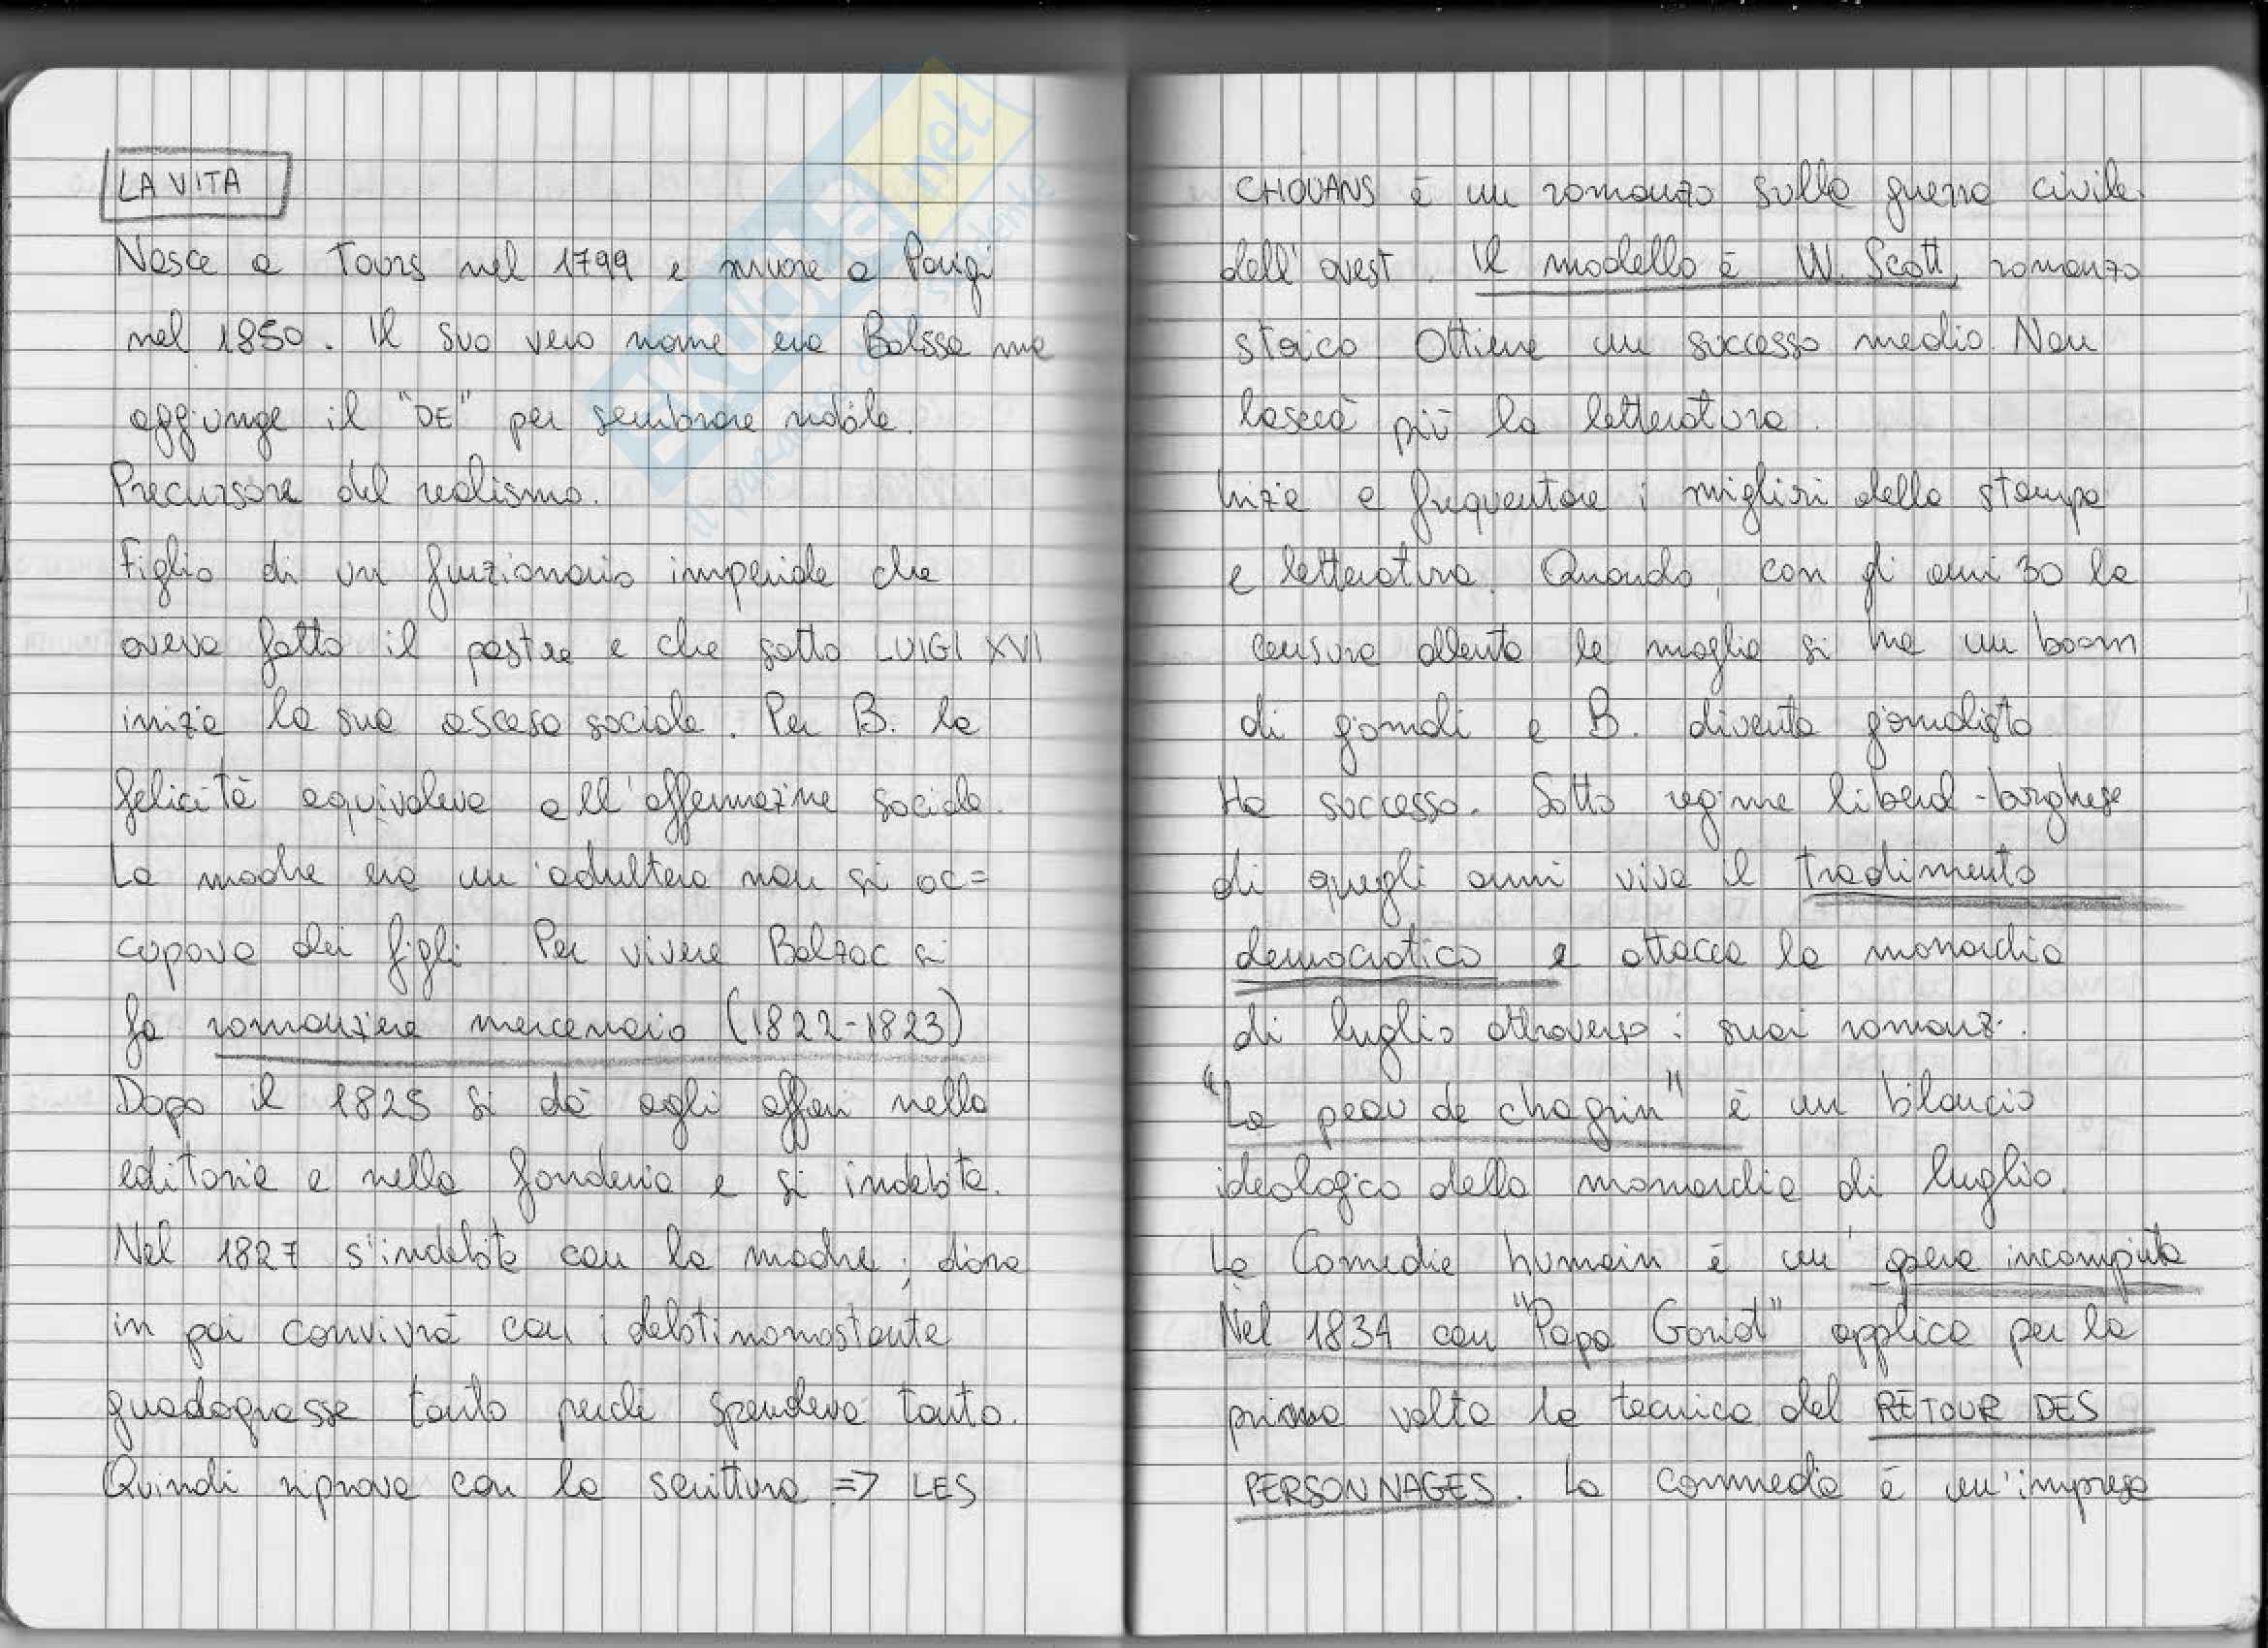 LA VITA
Nasce a Tours nel 1799 e muore a Parigi
nel 1850. Il suo vero nome era Balssa ma
aggiunge il "DE" per sembrare nobile.
Precursore del realismo.
Figlio di un funzionario imperiale che
aveva fatto il pastore e che sotto LUIGI XVI
inizia la sua ascesa sociale. Per B. la
felicità equivaleva all'affermazione sociale.
La madre era un'adultera non si oc=
cupava dei figli. Per vivere Balzac si
fa romanziere mercenario (1822-1823)
Dopo il 1825 si dà agli affari nella
editoria e nella fonderia e si indebita.
Nel 1827 s'indebita con la madre; d'ora
in poi convivrà con i debiti nonostante
guadagnasse tanto perché spendeva tanto.
Quindi riprova con la scrittura => LES
CHOUANS è un romanzo sulla guerra civile
dell'ovest. Il modello è W. Scott, romanzo
storico Ottiene un successo medio. Non
lascerà più la letteratura.
Inizia a frequentare i migliori della stampa
e letteratura. Quando, con gli anni 30 la
censura allenta le maglie si ha un boom
di giornali e B. diventa giornalista
Ha successo. Sotto regime liberal-borghese
di quegli anni vive il tradimento
democratico e attacca la monarchia
di luglio attraverso i suoi romanzi.
"La peau de chagrin" è un bilancio
ideologico della monarchia di luglio.
La Comedie humain è un'opera incompiuta
Nel 1834 con "Papa Goriot" applica per la
prima volta la tecnica del RETOUR DES
PERSONNAGES. La commedia è un'impresa
EKUOLA.net